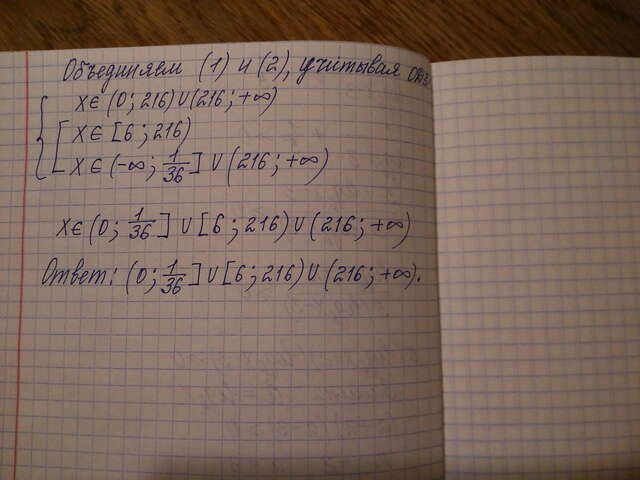 Объединяем (1) и (2), учитывая ОДЗ
x ∈ (0; 216) ∪ (216; +∞)
x ∈ [6; 216)
x ∈ (-∞; 1/36] ∪ (216; +∞)
x ∈ (0; 1/36] ∪ [6; 216) ∪ (216; +∞)
Ответ: (0; 1/36] ∪ [6; 216) ∪ (216; +∞).